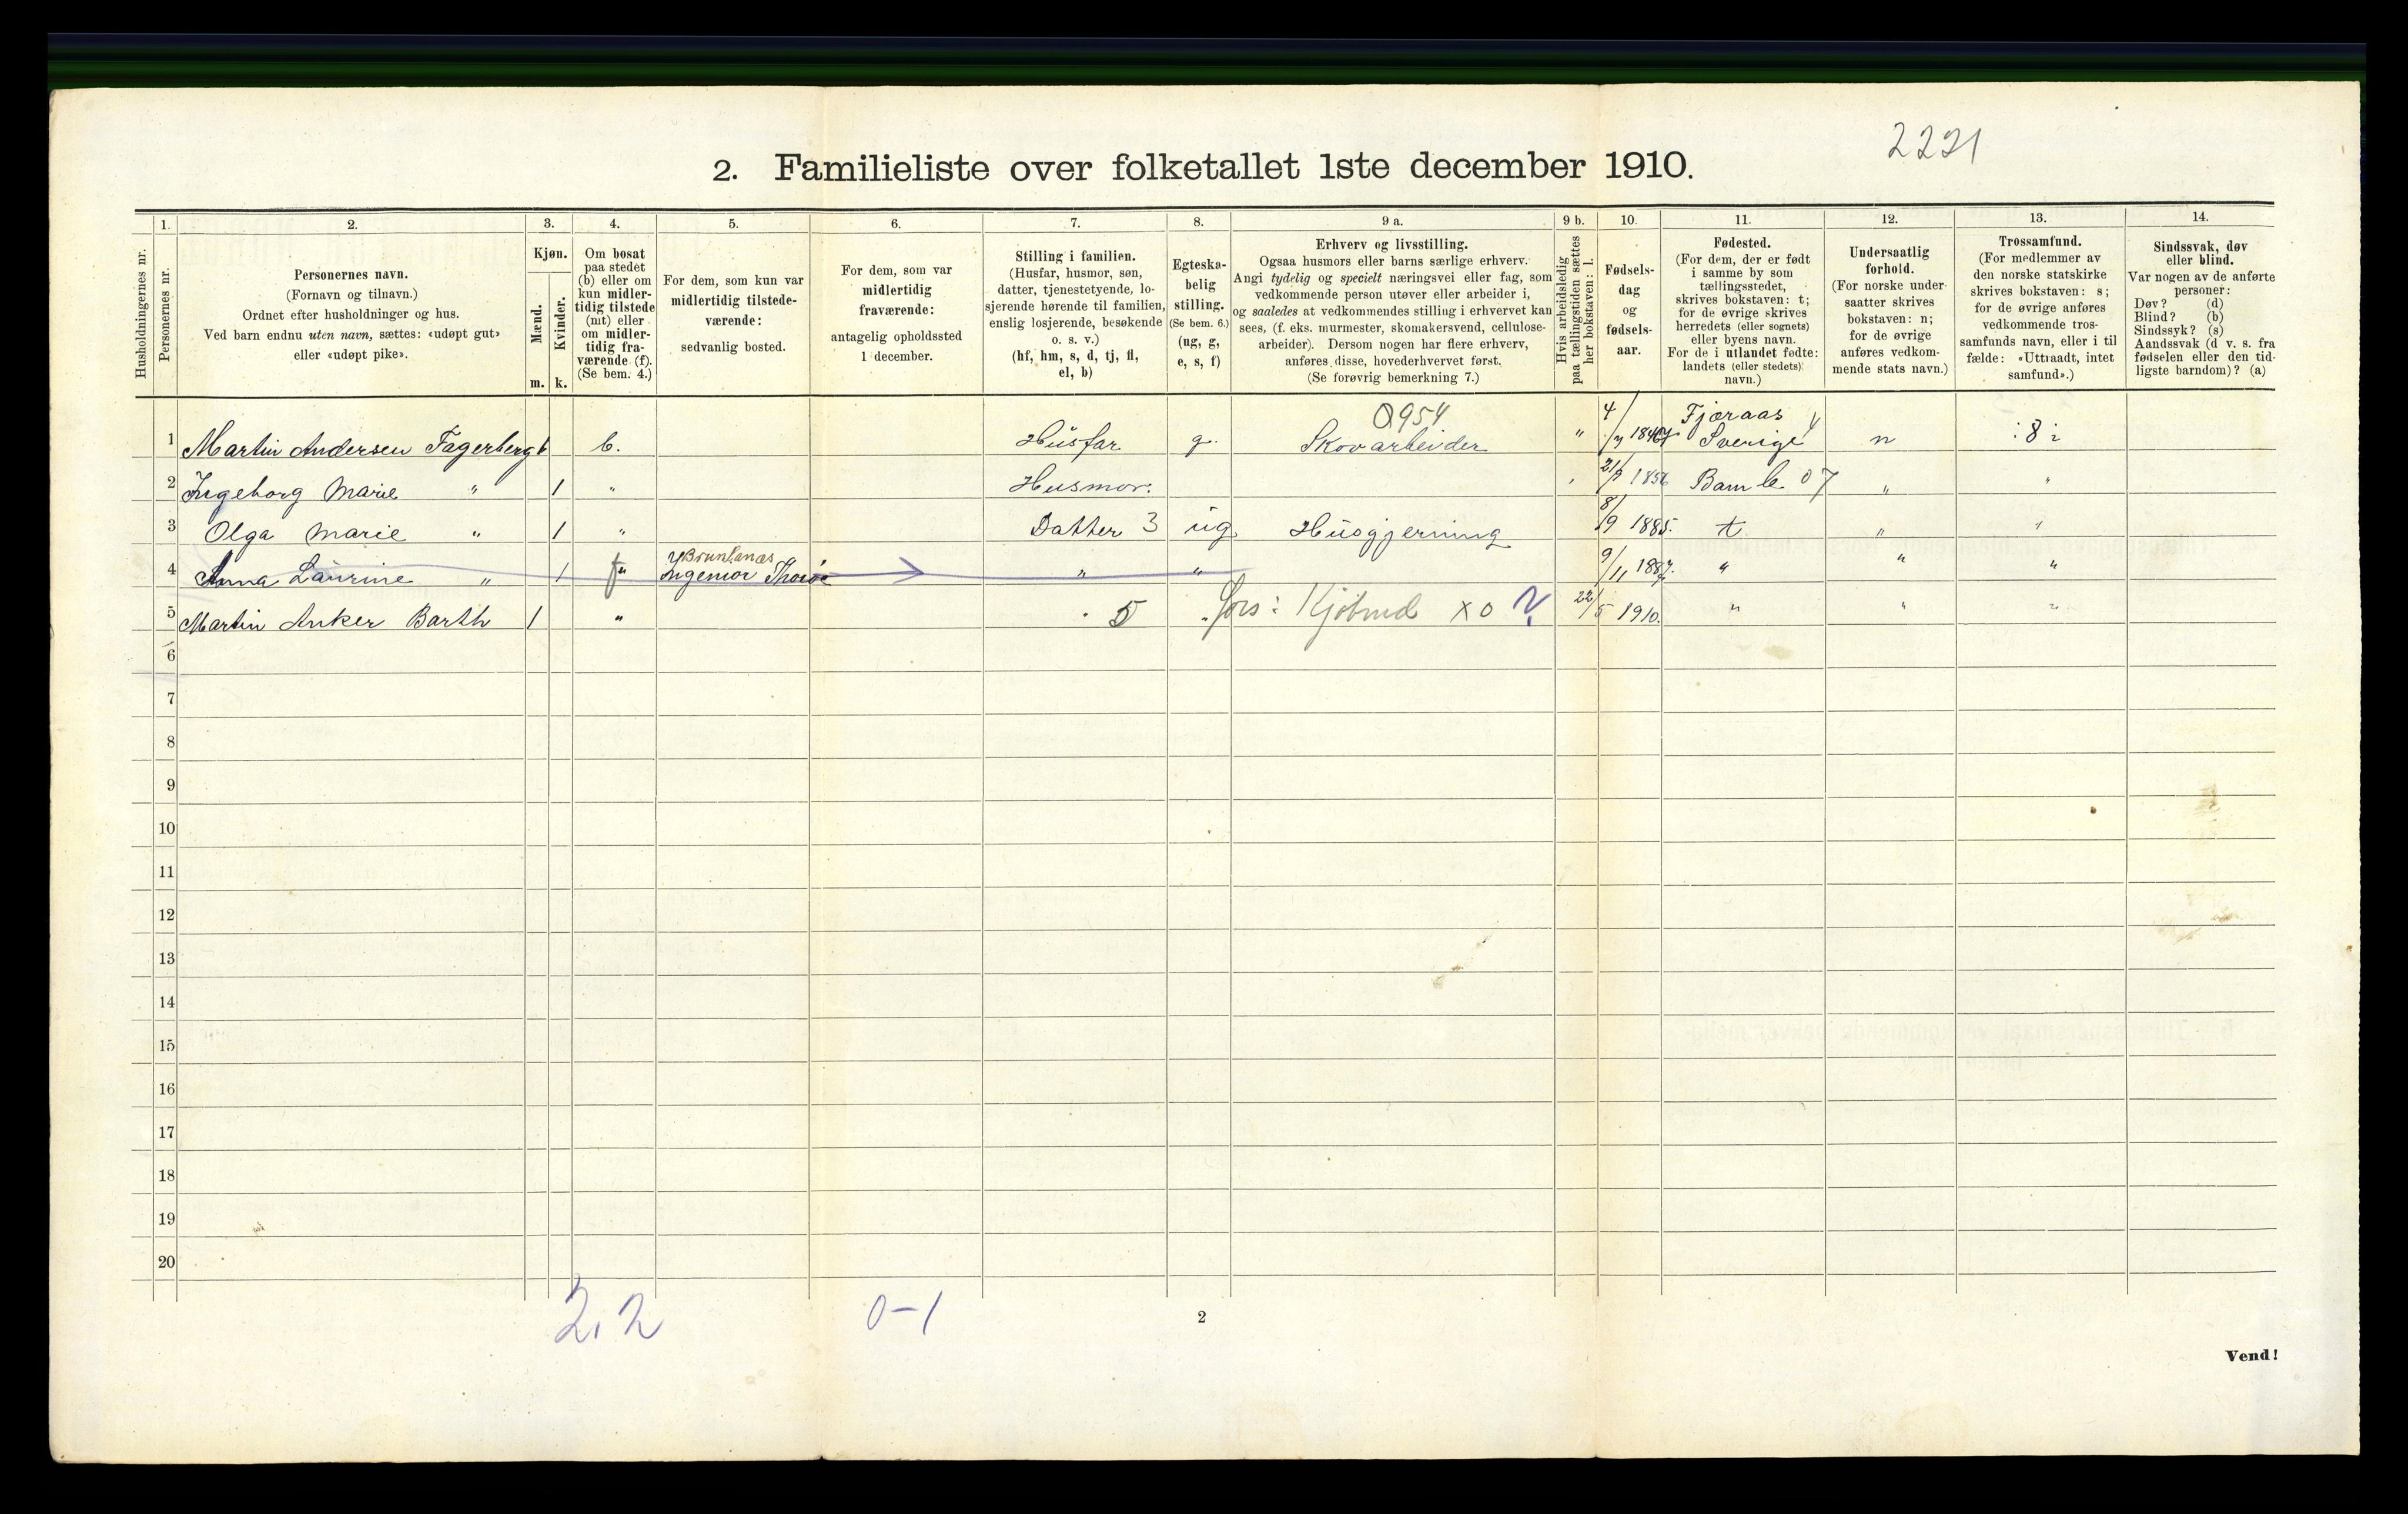 2221
2. Familieliste over folketallet 1ste december 1910.
1. 2. 3. 4. 5. 6. 7. 8. 9 a. 9 b. 10. 11. 12. 13. 14.
Husholdningernes nr.
Personernes nr.
Personernes navn.
(Fornavn og tilnavn.)
Ordnet efter husholdninger og hus.
Ved barn endnu uten navn, sættes: «udøpt gut»
eller «udøpt pike».
Kjøn.
Mænd.
Kvinder.
m. k.
Om bosat
paa stedet
(b) eller om
kun midler-
tidig tilstede
(mt) eller
om midler-
tidig fra-
værende (f).
(Se bem. 4.)
For dem, som kun var
midlertidig tilstede-
værende:
sedvanlig bosted.
For dem, som var
midlertidig
fraværende:
antagelig opholdssted
1 december.
Stilling i familien.
(Husfar, husmor, søn,
datter, tjenestetyende, lo-
sjerende hørende til familien,
enslig losjerende, besøkende
o. s. v.)
(hf, hm, s, d, tj, fl,
el, b)
Egteska-
belig
stilling.
(Se bem. 6.)
(ug, g,
e, s, f)
Erhverv og livsstilling.
Ogsaa husmors eller barns særlige erhverv.
Angi tydelig og specielt næringsvei eller fag, som
vedkommende person utøver eller arbeider i,
og saaledes at vedkommendes stilling i erhvervet kan
sees, (f. eks. murmester, skomakersvend, cellulose-
arbeider). Dersom nogen har flere erhverv,
anføres disse, hovederhvervet først.
(Se forøvrig bemerkning 7.)
Hvis arbeidsledig
paa tællingstiden sættes
her bokstaven: l.
Fødsels-
dag
og
fødsels-
aar.
Fødested.
(For dem, der er født
i samme by som
tællingsstedet,
skrives bokstaven: t;
for de øvrige skrives
herredets (eller sognets)
eller byens navn.
For de i utlandet fødte:
landets (eller stedets)
navn.)
Undersaatlig
forhold.
(For norske under-
saatter skrives
bokstaven: n;
for de øvrige
anføres vedkom-
mende stats navn.)
Trossamfund.
(For medlemmer av
den norske statskirke
skrives bokstaven: s;
for de øvrige anføres
vedkommende tros-
samfunds navn, eller i til
fælde: «Uttraadt, intet
samfund».)
Sindssvak, døv
eller blind.
Var nogen av de anførte
personer:
Døv? (d)
Blind? (b)
Sindssyk? (s)
Aandssvak (d v. s. fra
fødselen eller den tid-
ligste barndom)? (a)
0954 4/ Fjæraas
1 Martin Andersen Fagerberg 1 b. Husfar g. Skovarbeider " Sverige n
2 Ingeborg Marie " 1 " Husmor. 1856 Bamle 07 " "
3 Olga Marie " 1 " Datter 3 ug Husgjerning 8/9 1885. t " "
Brunlanæs
4 Anna Laurine " 1 f " " 9/11 1887. " " "
5 Martin Anker Barth 1 " 5 " fors: x 0 ? 22/5 1910. " " "
6
7
8
9
10
11
12
13
14
15
16
17
18
19
20
2,2 0-1 2
Vend!